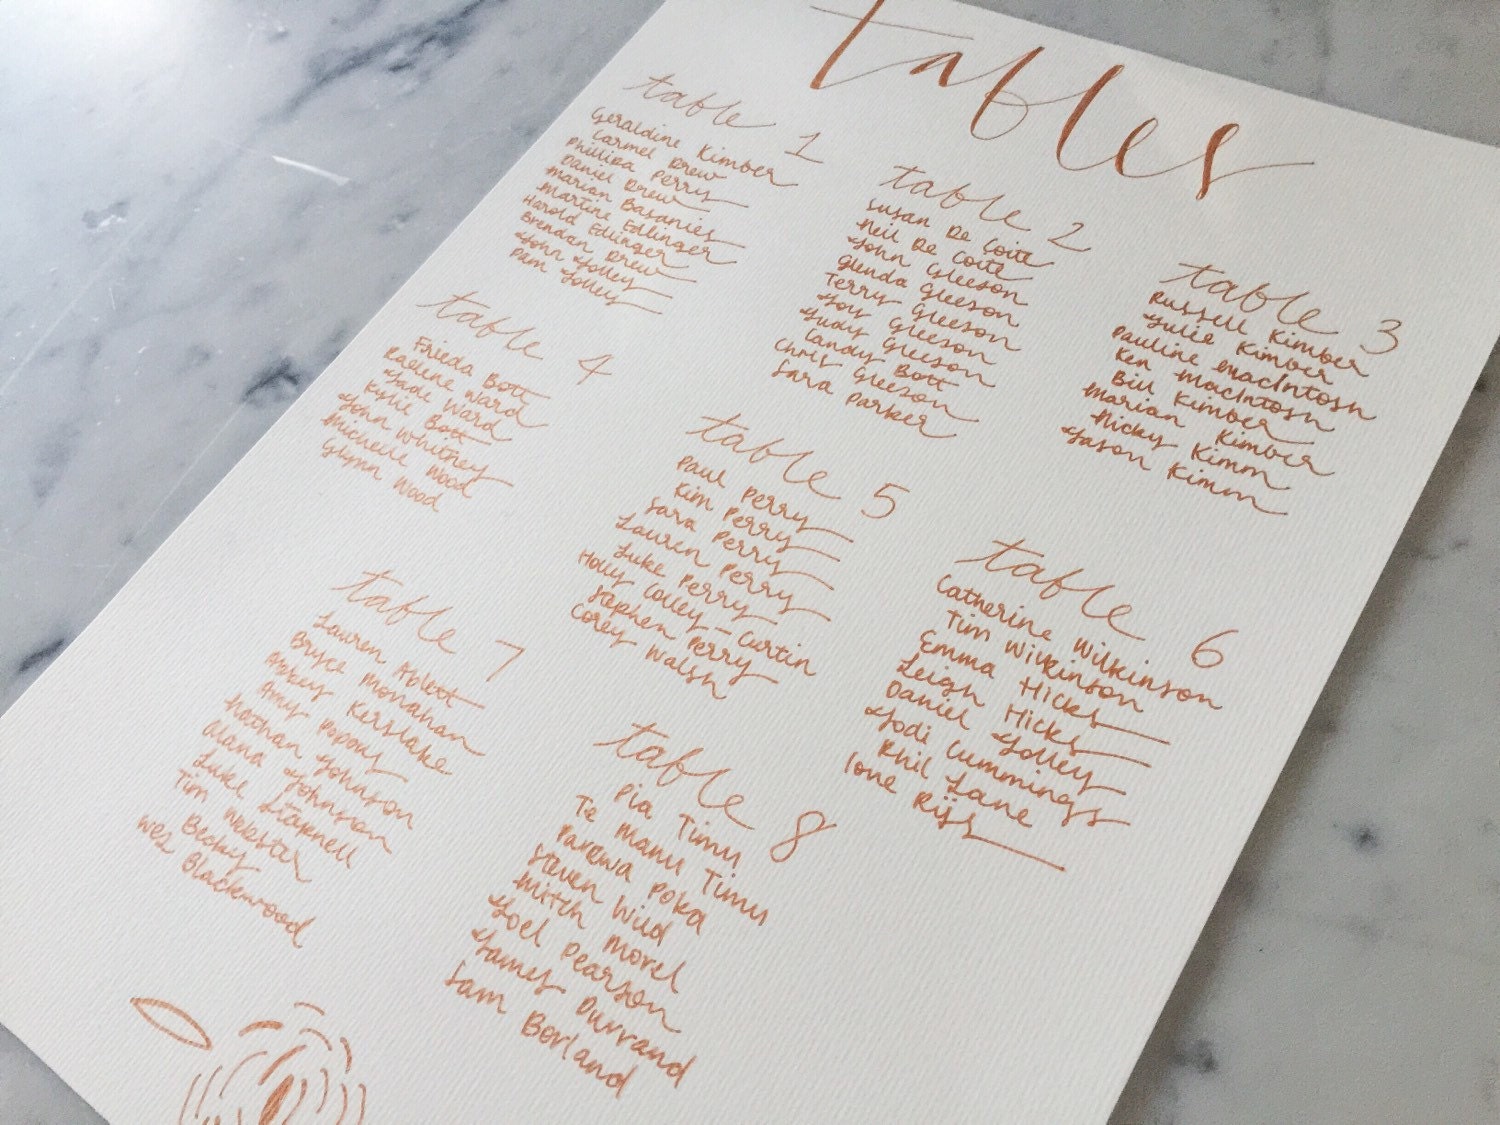 tables
table 1
Geraldine Kimber
Carmel Drew
Phillipa Perry
Daniel Drew
Marian Basanies
Martine Edlinger
Harold Edlinger
Brendan Drew
John Jolley
Pam Jolley
table 2
Susan De Coite
Neil De Coite
John Gleeson
Glenda Gleeson
Terry Gleeson
Joy Gleeson
Judy Gleeson
Candy Bott
Chris Gleeson
Sara Parker
table 3
Russell Kimber
Julie Kimber
Pauline MacIntosh
Ken MacIntosh
Bill Kimber
Marian Kimber
Nicky Kimm
Jason Kimm
table 4
Frieda Bott
Raelene Ward
Jade Ward
Kylie Bott
John Whitney
Michelle Wood
Glynn Wood
table 5
Paul Perry
Kim Perry
Sara Perry
Lauren Perry
Luke Perry
Holly Colley-Curtin
Stephen Perry
Corey Walsh
table 6
Catherine Wilkinson
Tim Wilkinson
Emma Hicks
Leigh Hicks
Daniel Jolley
Jodi Cummings
Phil Lane
Ione Rijs
table 7
Lauren Abbott
Bryce Monahan
Abbey Kerslake
Amy Popous
Nathan Johnson
Alana Johnson
Luke Stapnell
Tim Webster
Becky
Wes Blackwood
table 8
Pia Timu
Te Manu Timu
Parewa Poka
Steven Wild
Mitch Morel
Joel Pearson
James Durrand
Sam Borland